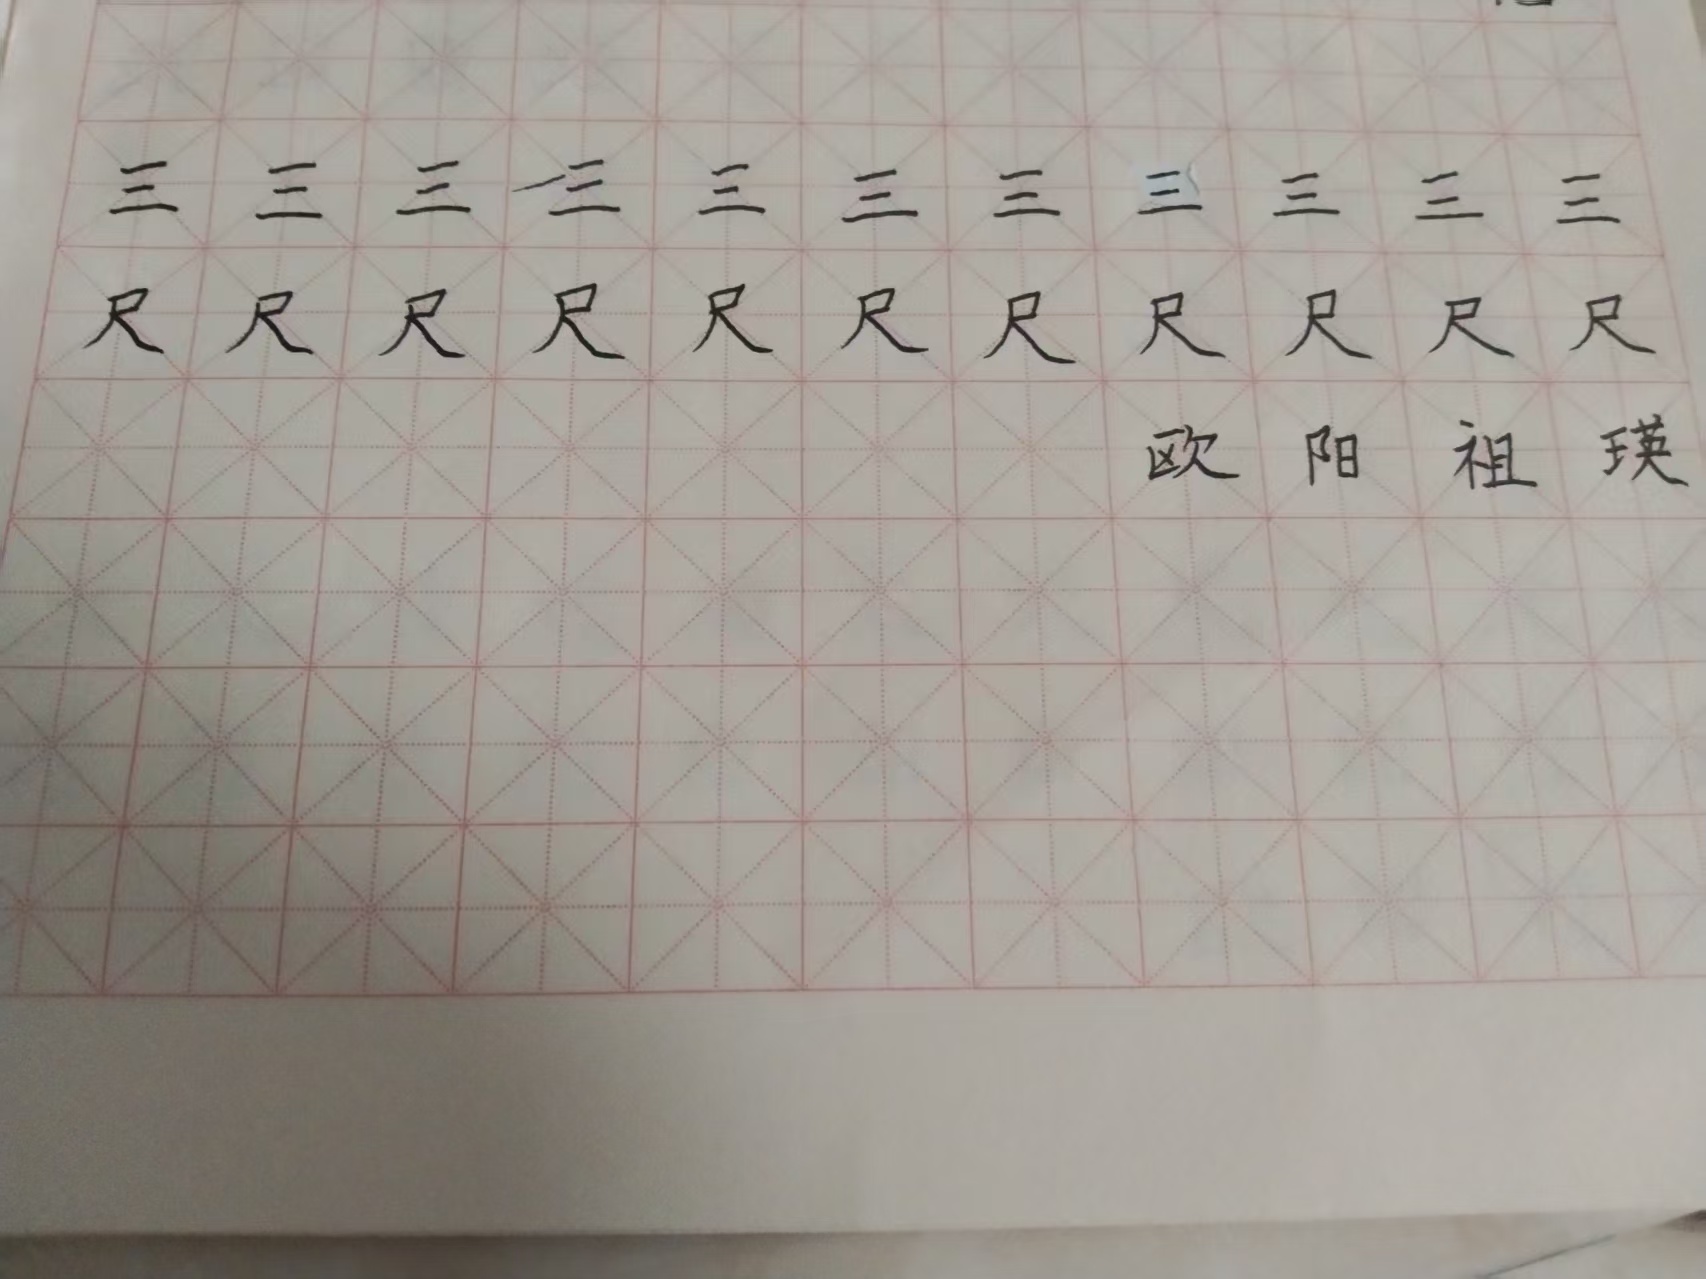 三三三三三三三三三三三
尺尺尺尺尺尺尺尺尺尺尺
欧阳祖瑛